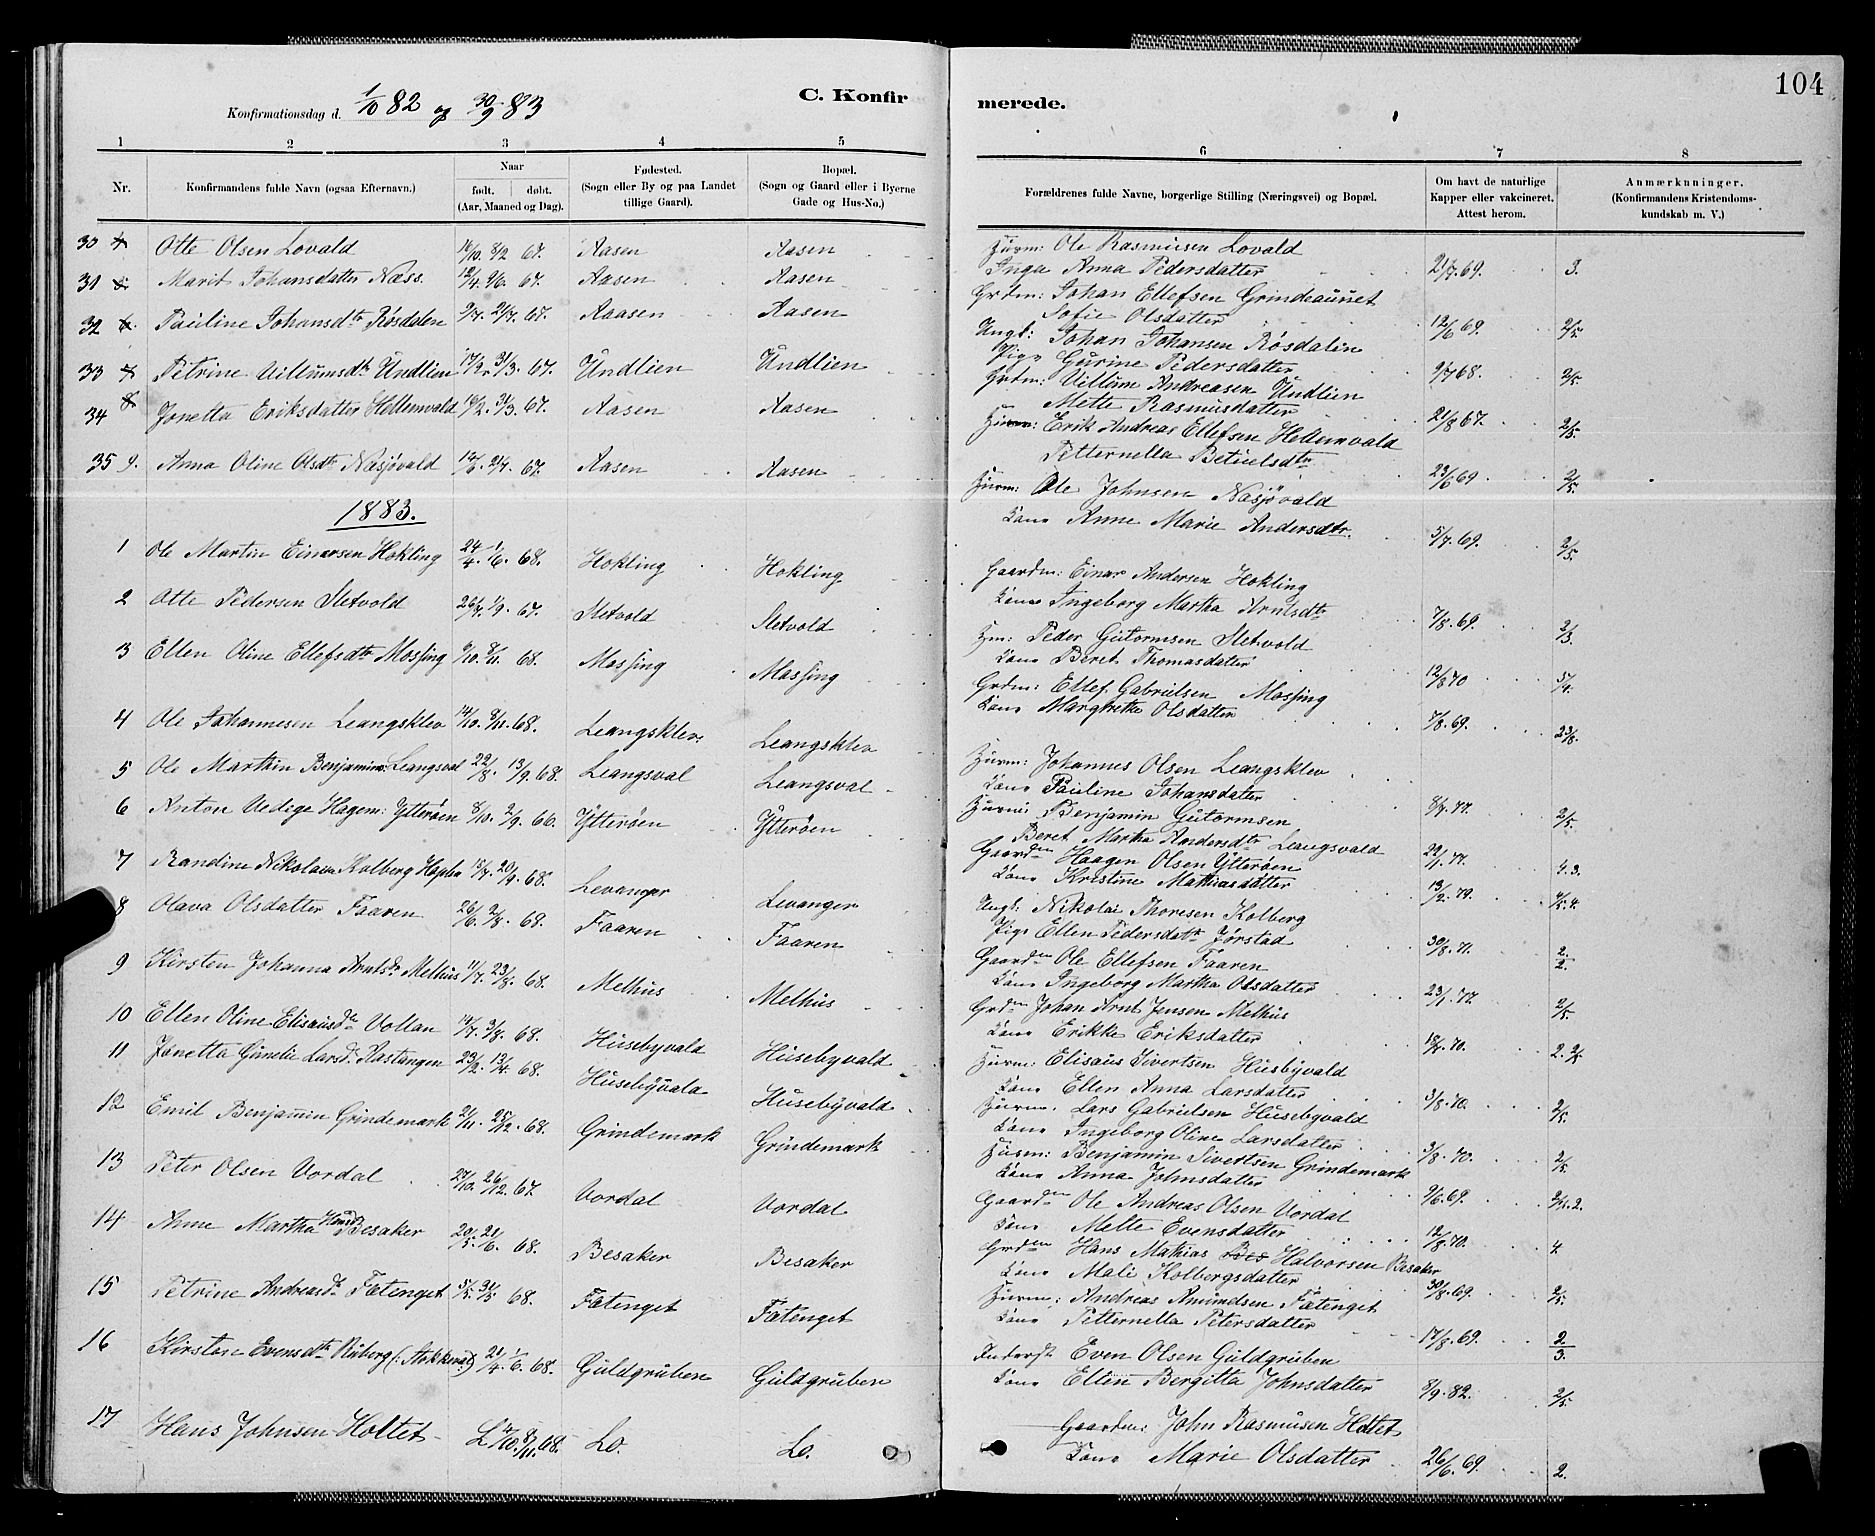 104
C. Konfir
merede.
Konfirmationsdag d. 1/10 82 og 30/9 83
1 2 3 4 5 6 7 8
Nr.
Konfirmandens fulde Navn (ogsaa Efternavn.)
Naar
født. døbt.
(Aar, Maaned og Dag).
Fødested.
(Sogn eller By og paa Landet
tillige Gaard).
Bopæl.
(Sogn og Gaard eller i Byerne
Gade og Hus-No.)
Forældrenes fulde Navne, borgerlige Stilling (Næringsvei) og Bopæl.
Om havt de naturlige
Kapper eller vakcineret.
Attest herom.
Anmærkninger.
(Konfirmandens Kristendoms-
kundskab m. V.)
30 Otte Olsen Lovald 16/10 8/12 67. Aasen Aasen Husm: Ole Rasmusen Lovald
Inga Anna Pedersdatter 21/7 69. 3.
31 Marit Johansdatter Næss. 12/4 9/6. 67. Aasen Aasen Grdm: Johan Ellefsen Grindeaunet
Sofie Olsdatter 12/6 69. 2/5.
32 Pauline Johansdtr Røsdalen 9/7. 21/7. 67. Aaasen Aasen Ungk: Johan Johansen Rösdalin
Pige Gurine Pedersdatter 9/7 68. 2/5
33 Petrine Villumsdtr Undlien 17/2. 31/3. 67. Undlien Undlien Grdm: Villum Andreasen Undlien
Mette Rasmusdatter 21/8 67. 2/5.
34 8 Jonetta Eriksdatter Hellemvald 16/2. 31/3. 67. Aasen Aasen Husm: Erik Andreas Ellefsen Hellemvald
Petternella Betuelsdtr 23/6 69 2/5.
35 9. Anna Oline Olsdtr Nasjövald 14/6. 21/7. 67. Aasen Aasen Husm: Ole Johnsen Nasjövald
Kone Anne Marie Andersdtr. 5/7. 69. 2/5.
1883.
1 Ole Martin Einarsen Hokling 24/4. 1/6. 68. Hokling Hokling Gaardm: Einar Andersen Hokling
Kone Ingeborg Martha Arntsdtr 7/8. 69. 2/3.
2 Otte Pedersen Sletvold 26/7. 1/9. 67. Sletvold Sletvold Hm: Peder Gutormsen Sletvold
Kone Beret Thomasdatter 12/8 70 5/4.
3 Ellen Oline Ellefsdtr Mossing 9/10. 8/11. 68. Mossing Mossing Grdm: Ellef Gabrielsen Mossing
Kone Margrethe Olsdatter 7/8. 69. 23/8.
4 Ole Johannesen Leangsklev 14/10. 8/11. 68. Leangsklev Leangsklev Husm: Johannes Olsen Leangsklev
Kone Pauline Johansdatter 8/7. 77. 2/5.
5 Ole Marthin Benjamins: Leangsval 22/8. 13/9. 68. Leangsval Leangsval Husm: Benjamin Gutormsen
Beret Martha Andersdtr Leangsvald 22/1. 77. 4.3.
6 Anton Uedige Hagem: Ytterøen 8/10. 2/9. 66. Ytterøen Ytterøen Gaardm Haagen Olsen Ytterøen
Kone Kristine Mathiasdatter 13/2. 79. 4/5.4.
7 Randine Nikolava Kolberg Hoplea 15/7. 20/9. 68. Levanger Levanger Ungk: Nikolai Thoresen Kolberg
Pige Ellen Pedersdatr Jørstad 30/8. 71. 2/2.
8 Olava Olsdatter Faaren 26/6. 2/8. 68. Faaren Faaren Gaardm Ole Ellefsen Faaren
Kone Ingeborg Martha Olsdatter 23/1. 77. 2/5.
9 Kirsten Johanna Arntsdr Melhus 11/7. 23/8. 68. Melhus Melhus Grdm Johan Arnt Jensen Melhus
Kone Erikke Eriksdatter 18/8. 70. 2. 2/5
10 Ellen Oline Elisæusdr Vollan 14/7. 3/8. 68. Husebyvald Husebyvald Husm: Elisæus Sivertsen Husbyvald
Kone Ellen Anna Larsdatter 3/8. 70. 2/5.
11 Jonetta Gunelie Larsd. Aastangen 23/2. 13/4. 68. Husebyvald Husebyvald Husm. Lars Gabrielsen Husebyvald
Kone Ingeborg Oline Larsdatter 3/8. 70. 2/5.
12 Emil Benjamin Grindemark 21/11. 25/12. 68. Grindemark Grindemark Husm: Benjamin Sivertsen Grindemark
Kone Anna Johnsdatter 9/6. 69. 2/1.2.
13 Peter Olsen Vordal 27/10. 26/12. 67. Vordal Vordal Gaardm Ole Andreas Olsen Vordal
Kone Mette Evensdatter 12/8. 70. 4.
14 Anne Martha Hansdr Besaker 20/5. 21/6. 68. Besaker Besaker Grdm Hans Mathias Halvorsen Besaker
Kone Mali Kolbergsdatter 30/8. 69. 2/5.
15 Petrine Andreasdr Fætenget 5/5. 31/5 68. Fætenget Fætenget Husm: Andreas Amundsen Fætenget
Kone Petternella Petersdatter 17/8. 69. 2/3.
16 Kirsten Evensdtr Ruberg 21/4. 1/6. 68. Guldgruben Guldgruben Inderst Even Olsen Guldgruben
Kone Ellen Bergitta Johnsdatter 8/9. 82. 2/5
17 Hans Johnsen Holtet 4/10. 8/11. 68. Lo. Lo. Gaardm: John Rasmusen Holtet
Kone Marie Olsdatter 26/6. 69. 2.